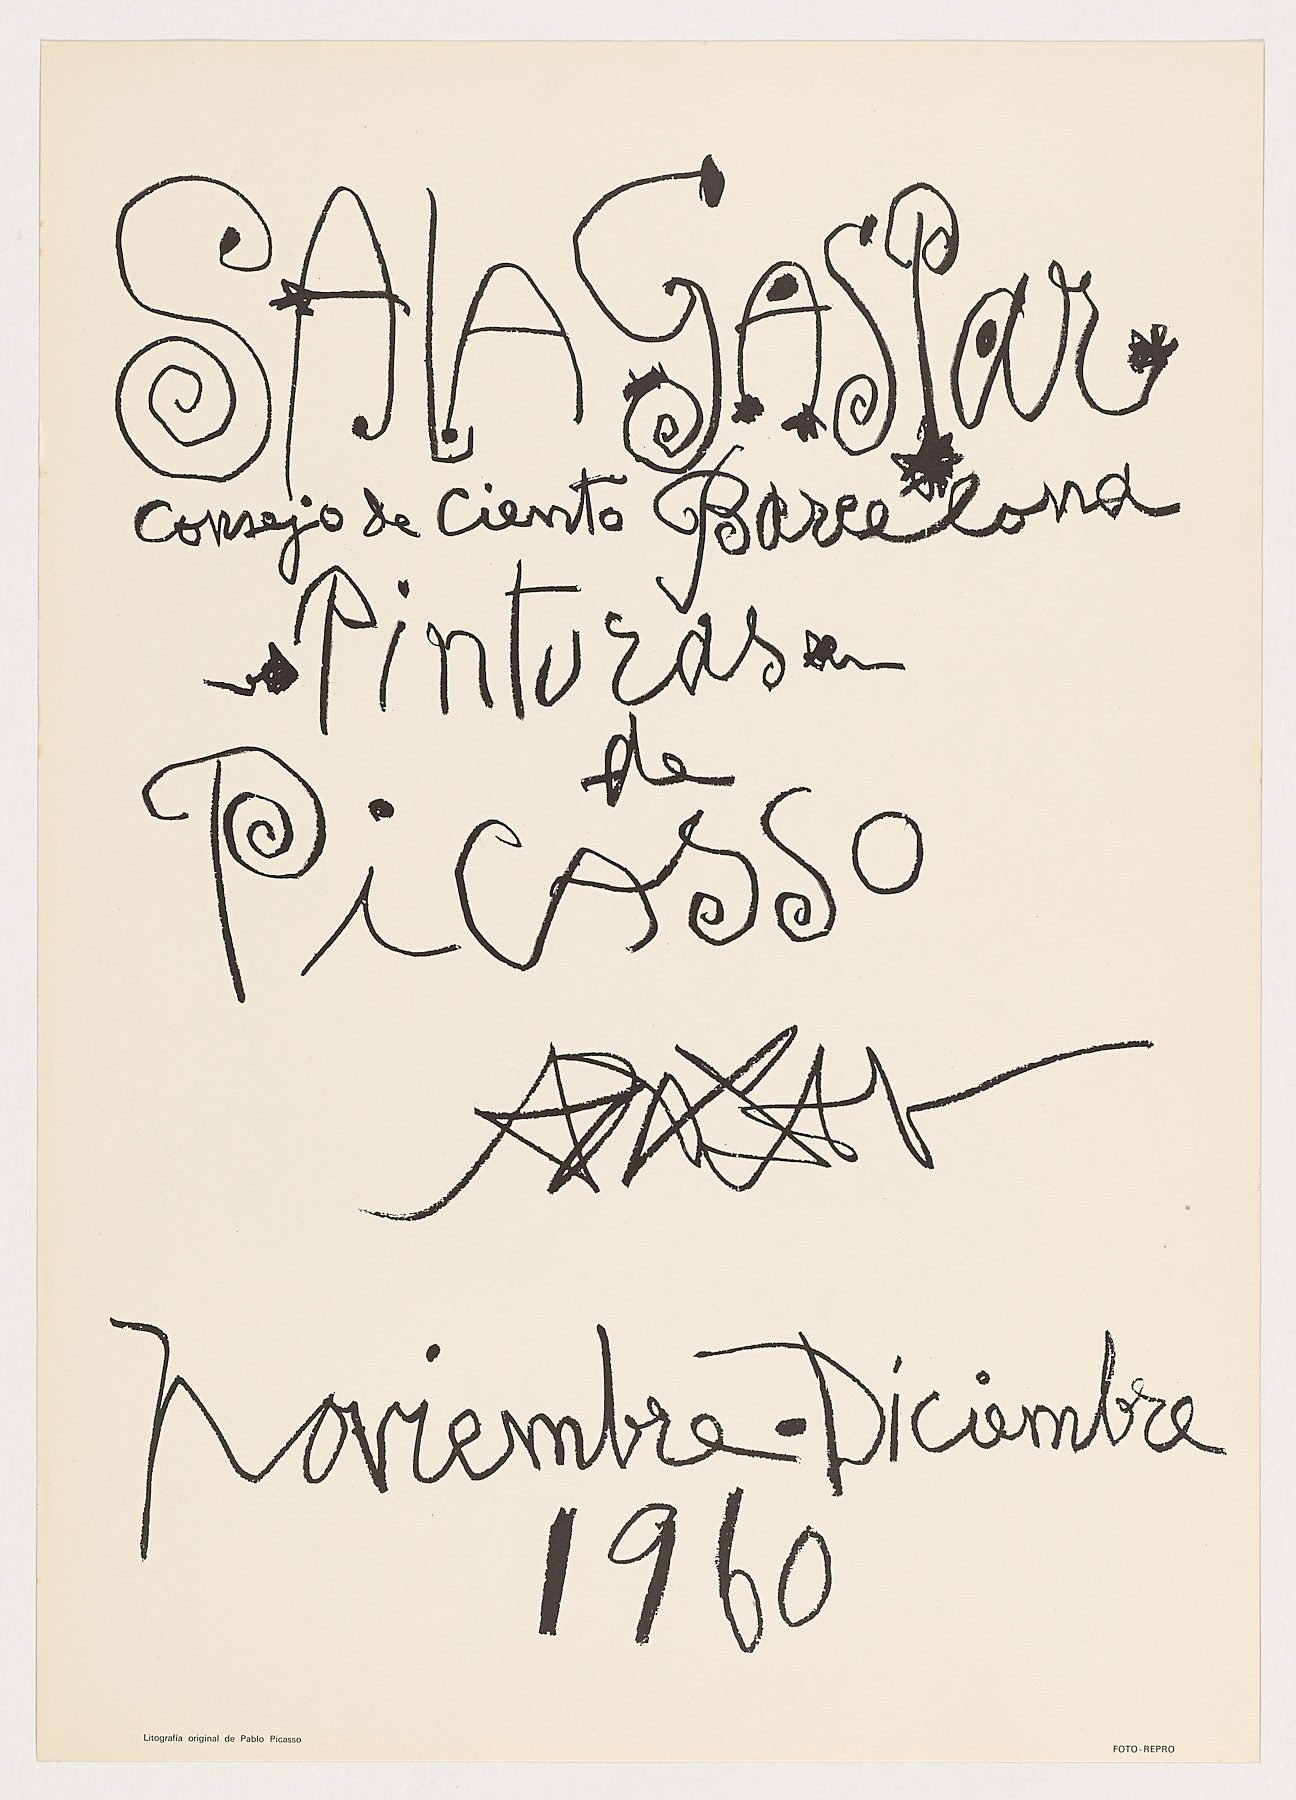 SALA GASPar
consejo de Ciento Barcelona
Pinturas
de
Picasso
Noviembre - Diciembre
1960
Litografía original de Pablo Picasso
FOTO-REPRO